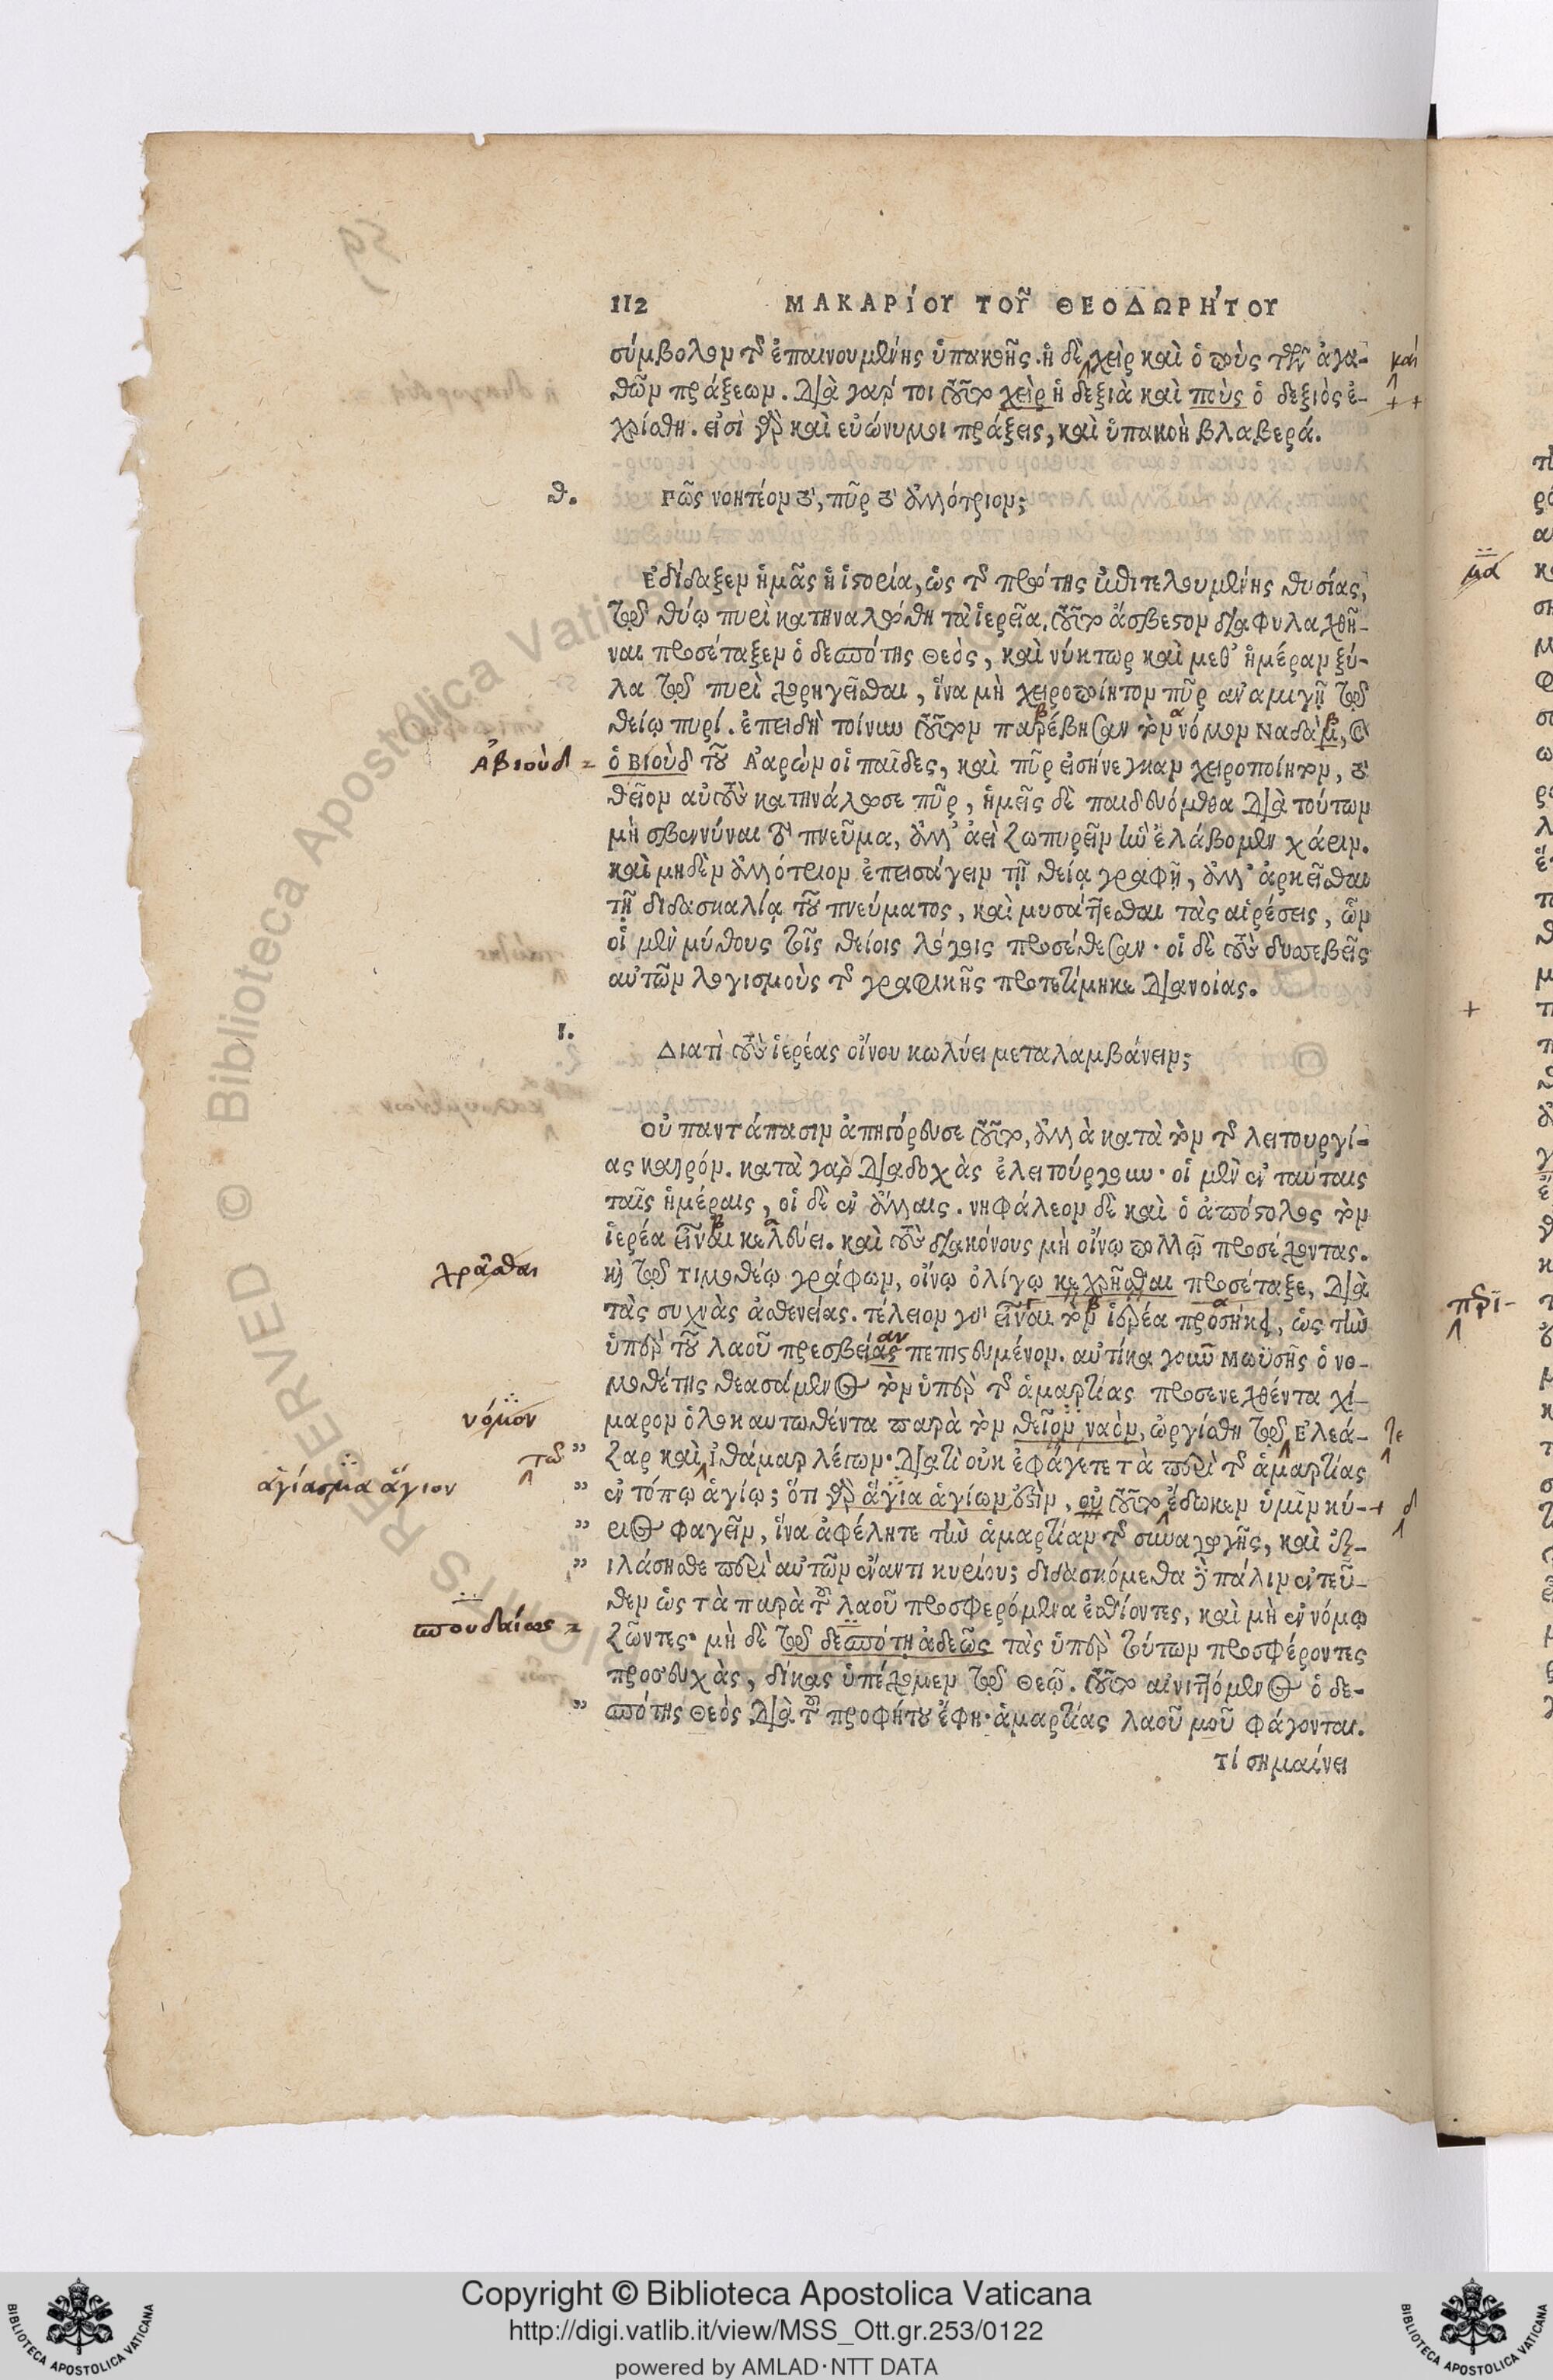 112 ΜΑΚΑΡίΟΥ ΤΟῦ ΘΕΟΔΩΡΉΤΟΥ
σύμβολον τῆς ἐπαινουμένης ὑπακοῆς. ἡ δὲ χεὶρ καὶ ὁ ποὺς τῶν ἀγα- καὶ
θῶν πράξεων. διὰ γάρ τοι τοῦτο χεὶρ ἡ δεξιὰ καὶ ποὺς ὁ δεξιὸς ἐ- ++
χρίσθη. εἰσὶ γὰρ καὶ εὐώνυμοι πράξεις, καὶ ὑπακοὴ βλαβερά.
θ. Πῶς νοητέον τὸ, πῦρ τὸ ἀλλότριον;
Εδίδαξεν ἡμᾶς ἡ ἱστορία, ὡς τῆς πρώτης ἐπιτελουμένης θυσίας,
τῷ θείῳ πυρὶ κατηναλώθη τὰ ἱερεῖα. τοῦτο ἄσβεστον διαφυλαχθῆ-
ναι προσέταξεν ὁ δεσπότης Θεὸς, καὶ νύκτωρ καὶ μεθ' ἡμέραν ξύ-
λα τῷ πυρὶ χορηγεῖσθαι, ἵνα μὴ χειροποίητον πῦρ ἀναμιγῇ τῷ
θείῳ πυρί. ἐπειδὴ τοίνυν τοῦτον παρέβησαν τὸν νόμον Ναδὰμ, καὶ
Ἀβιοὺδ = ὁ Βιοὺδ τοῦ Ἀαρὼν οἱ παῖδες, καὶ πῦρ εἰσήνεγκαν χειροποίητον, τὸ
θεῖον αὐτοὺς κατηνάλωσε πῦρ, ἡμεῖς δὲ παιδευόμεθα διὰ τούτων
μὴ σβεννύναι τὸ πνεῦμα, ἀλλ' ἀεὶ ζωπυρεῖν ἣν ἐλάβομεν χάριν.
καὶ μηδὲν ἀλλότριον ἐπεισάγειν τῇ θείᾳ γραφῇ, ἀλλ' ἀρκεῖσθαι
τῇ διδασκαλίᾳ τοῦ πνεύματος, καὶ μυσάττεσθαι τὰς αἱρέσεις, ὧν
οἱ μὲν μύθους τοῖς θείοις λόγοις προσέθεσαν· οἱ δὲ τοὺς δυσσεβεῖς
αὐτῶν λογισμοὺς τῆς γραφικῆς προτετίμηκε διανοίας.
ι. Διατὶ τοὺς ἱερέας οἴνου κωλύει μεταλαμβάνειν;
Οὐ παντάπασιν ἀπηγόρευσε τοῦτο, ἀλλὰ κατὰ τὸν τῆς λειτουργί-
ας καιρόν. κατὰ γὰρ διαδοχὰς ἐλειτούργουν· οἱ μὲν ἐν ταύταις
ταῖς ἡμέραις, οἱ δὲ ἐν ἄλλαις. νηφάλεον δὲ καὶ ὁ ἀπόστολος τὸν
ἱερέα εἶναι κελεύει. καὶ τοὺς διακόνους μὴ οἴνῳ πολλῷ προσέχοντας.
χρᾶσθαι καὶ τῷ Τιμοθέῳ γράφων, οἴνῳ ὀλίγῳ κεχρῆσθαι προσέταξε, διὰ
τὰς συχνὰς ἀσθενείας. τέλειον γὰρ εἶναι τὸν ἱερέα προσήκει, ὡς τὴν
ὑπὲρ τοῦ λαοῦ πρεσβείας πεπιστευμένον. αὐτίκα γοῦν Μωϋσῆς ὁ νο-
μοθέτης θεασάμενος τὸν ὑπὲρ τῆς ἁμαρτίας προσενεχθέντα χί-
νόμον μαρον ὁλοκαυτωθέντα παρὰ τὸν θεῖον ναὸν, ὠργίσθη τῷ Ελεά- τε
τῷ " ζαρ καὶ Ἰθάμαρ λέγων· διατὶ οὐκ ἐφάγετε τὰ περὶ τῆς ἁμαρτίας
ἁγίασμα ἅγιον " ἐν τόπῳ ἁγίῳ; ὅτι γὰρ ἅγια ἁγίων ἐστὶν, οὐ τοῦτο ἔδωκεν ὑμῖν κύ- + δ
" ριος φαγεῖν, ἵνα ἀφέλητε τὴν ἁμαρτίαν τῆς συναγωγῆς, καὶ ἐξ-
" ιλάσησθε περὶ αὐτῶν ἔναντι κυρίου; διδασκόμεθα δὲ πάλιν ἐντεῦ-
θεν ὡς τὰ παρὰ τοῦ λαοῦ προσφερόμενα ἐσθίοντες, καὶ μὴ ἐν νόμῳ
σπουδαίως = ζῶντες· μὴ δὲ τῷ δεσπότῃ ἀδεῶς τὰς ὑπὲρ τούτων προσφέροντες
προσευχὰς, δίκας ὑπέχομεν τῷ Θεῷ. τοῦτο αἰνιττόμενος ὁ δε-
" σπότης Θεὸς διὰ τοῦ προφήτου ἔφη· ἁμαρτίας λαοῦ μοῦ φάγονται.
τί σημαίνει
Copyright © Biblioteca Apostolica Vaticana
http://digi.vatlib.it/view/MSS_Ott.gr.253/0122
powered by AMLAD·NTT DATA